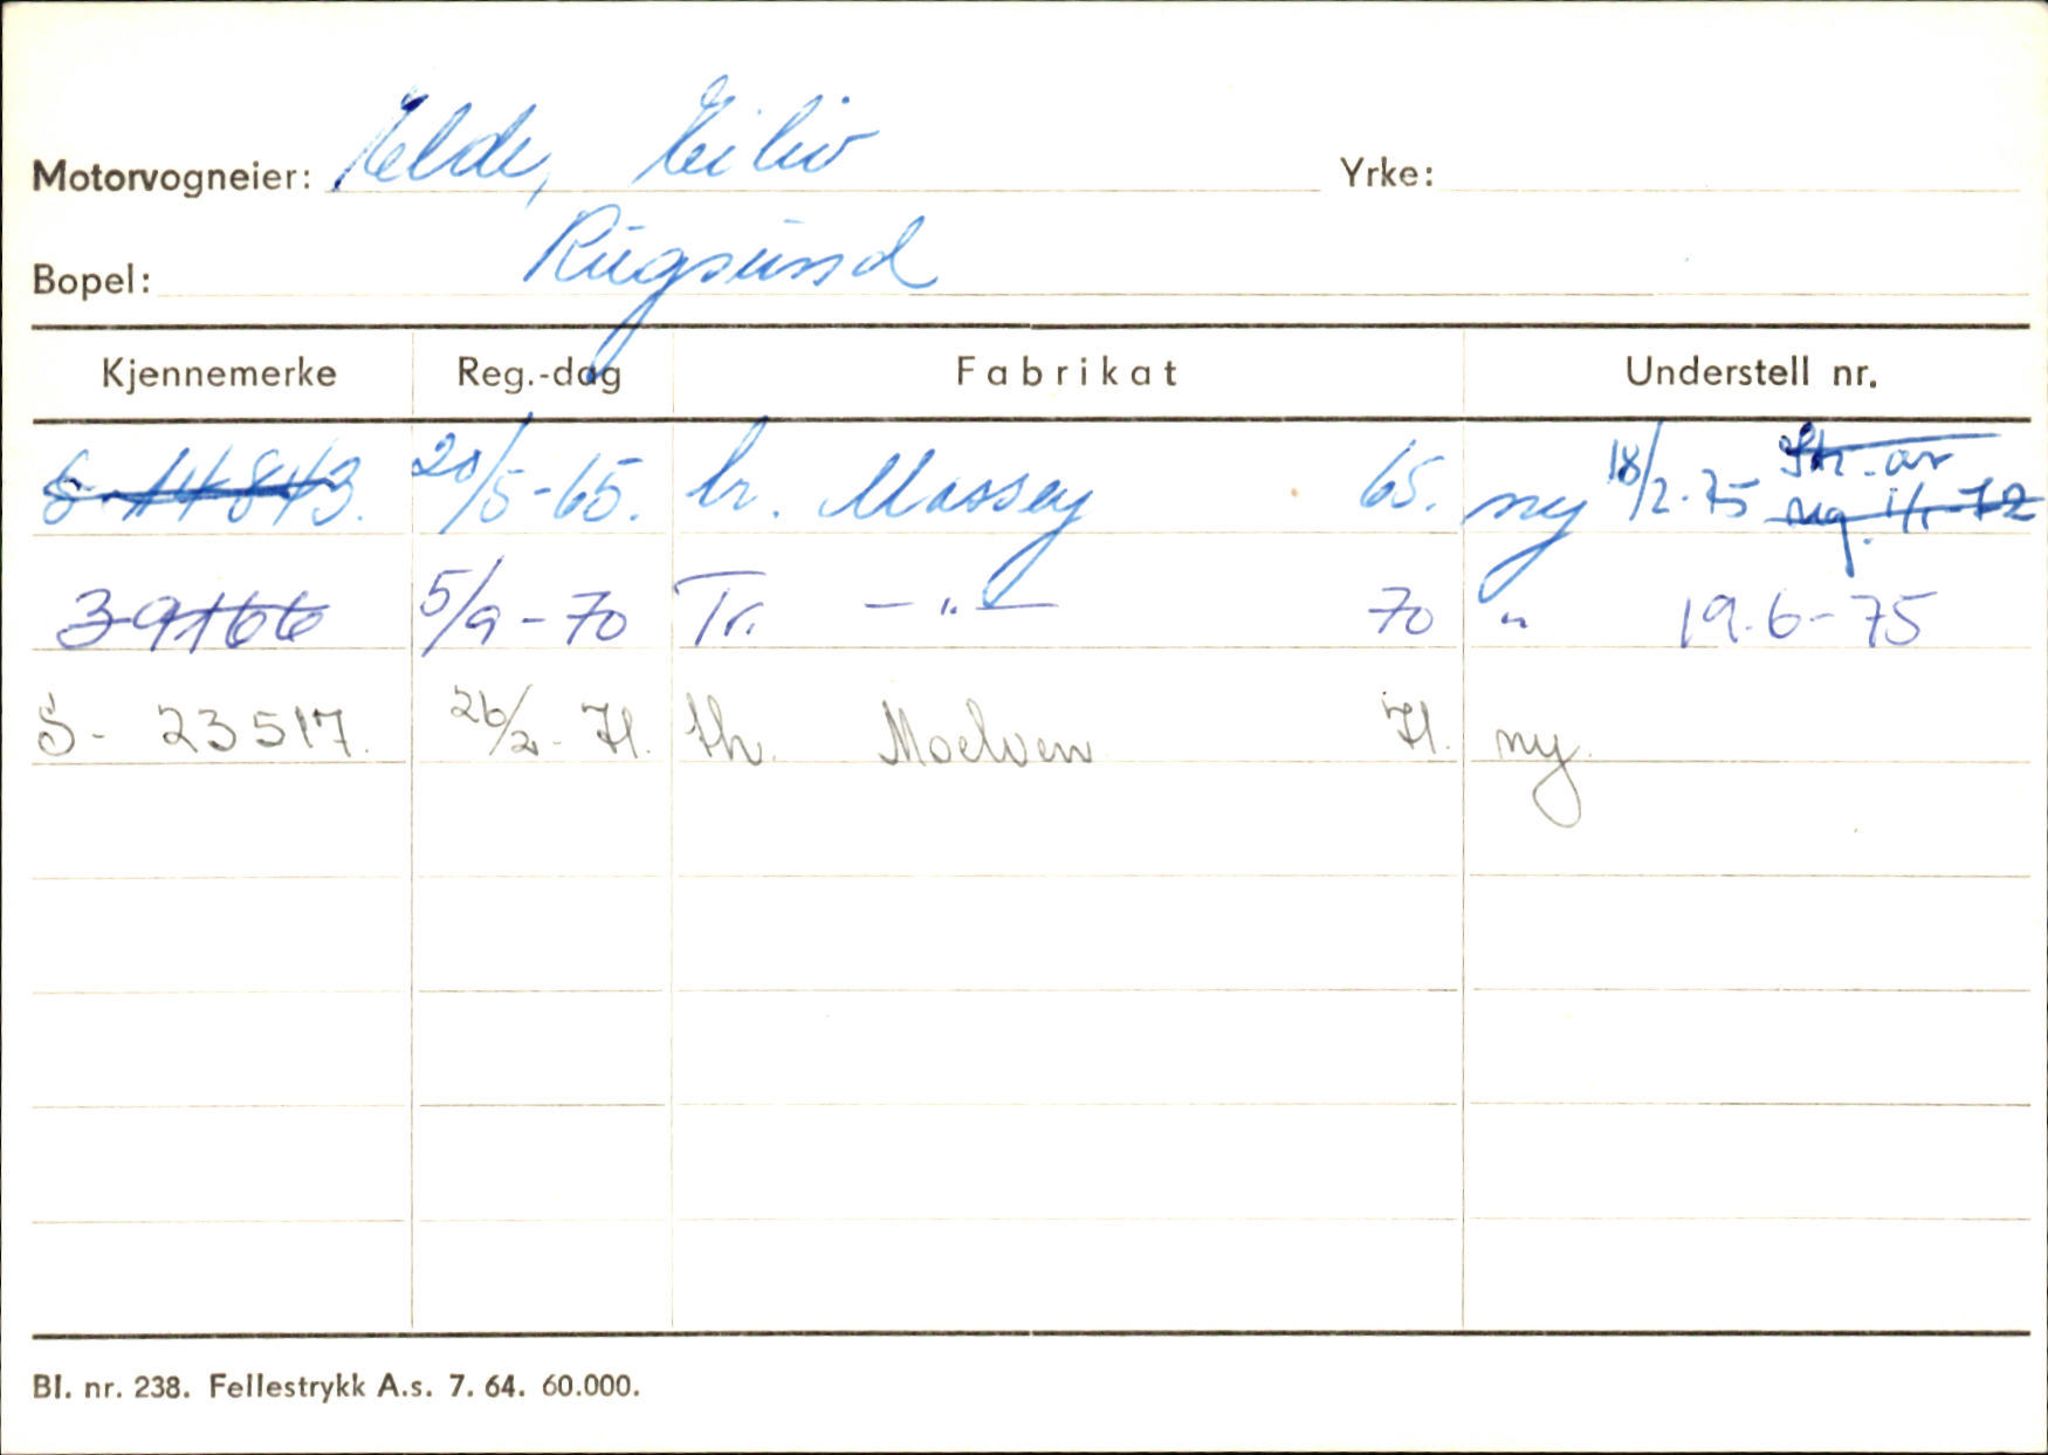 Motorvogneier: Elde, Eiliv Yrke:
Bopel: Rugsund
Kjennemerke Reg.-dag Fabrikat Understell nr.
S-14843. 20/5-65. tr. Massey 65. ny 18/2-75 Str. av
reg. 1/1-72
39166 5/9-70 Tr. —"— 70 " 19.6-75
S- 23517. 26/2-71. th. Moelven 71. ny.
Bl. nr. 238. Fellestrykk A.s. 7. 64. 60.000.